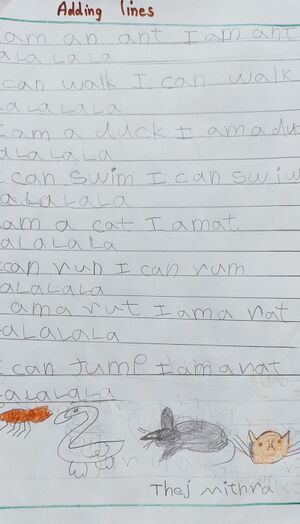 Adding lines
am an ant I am ant
aLaLaLa
can walk I can walk
LaLaLaLa
I am a duck I am a duc
aLaLaLa
I can swim I can swim
aLaLaLa
am a cat I amat
aLaLaLa
I can run I can rum
aLaLaLa
ama rut I ama rat
aLaLaLa
I can Jump I am a rat
aLaLaLa
Thej Mithra